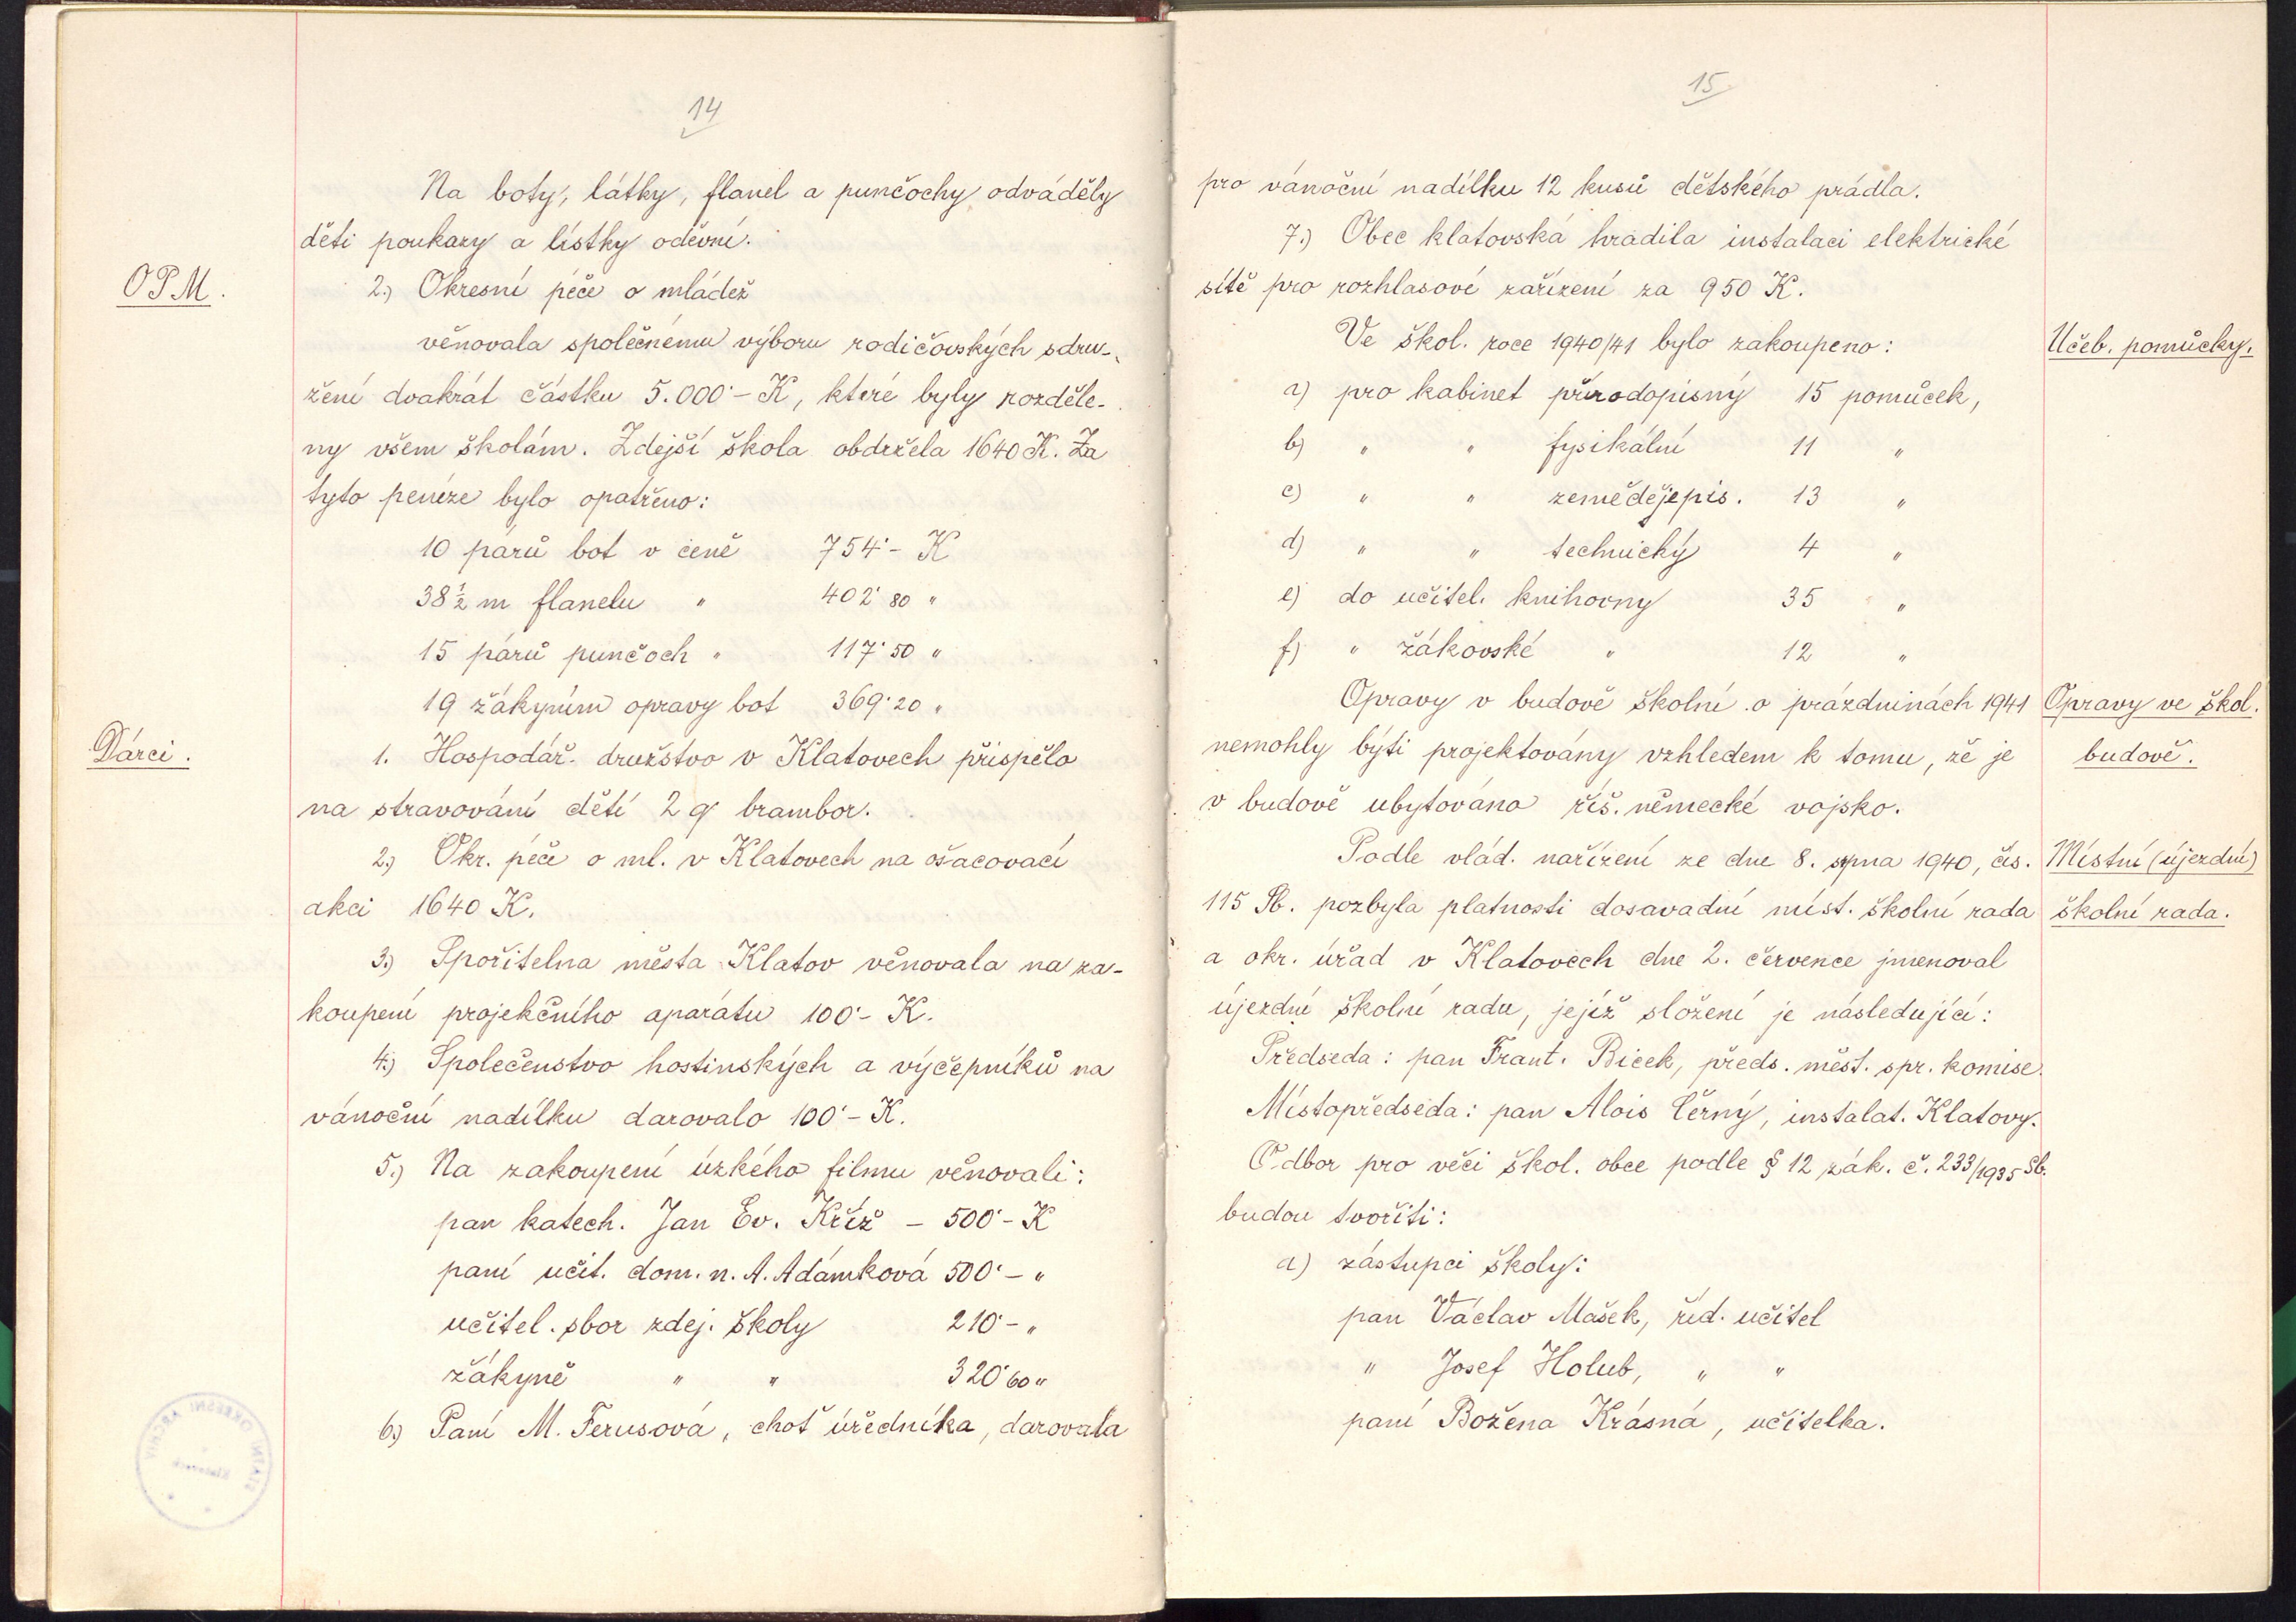 14
Na boty, látky, flanel a punčochy odváděly
děti poukazy a lístky oděvní.
OPM.
2.) Okresní péče o mládež
věnovala společnému výboru rodičovských sdru-
žení dvakrát částku 5.000·– K, které byly rozděle-
ny všem školám. Zdejší škola obdržela 1640 K. Za
tyto peníze bylo opatřeno:
10 párů bot v ceně 754·– K
38 ½ m flanelu " 402·80 "
15 párů punčoch " 117·50 "
19 žákyním opravy bot 369·20 "
Dárci.
1. Hospodář. družstvo v Klatovech přispělo
na stravování dětí 2 q brambor.
2.) Okr. péče o ml. v Klatovech na ošacovací
akci 1640 K.
3.) Spořitelna města Klatov věnovala na za-
koupení projekčního aparátu 100·– K.
4.) Společenstvo hostinských a výčepníků na
vánoční nadílku darovalo 100·– K.
5.) Na zakoupení úzkého filmu věnovali:
pan katech. Jan Ev. Kříž – 500·– K
paní učit. dom. n. A. Adámková 500·– "
učitel. sbor zdej. školy 210·– "
žákyně " " 320·60 "
6.) Paní M. Ferusová, choť úředníka, darovala
15
pro vánoční nadílku 12 kusů dětského prádla.
7.) Obec klatovská hradila instalaci elektrické
sítě pro rozhlasové zařízení za 950 K.
Ve škol. roce 1940/41 bylo zakoupeno:
Učeb. pomůcky.
a) pro kabinet přírodopisný 15 pomůcek,
b) " " fysikální 11 "
c) " " zemědějepis. 13 "
d) " " technický 4 "
e) do učitel. knihovny 35 "
f) " žákovské " 12 "
Opravy v budově školní o prázdninách 1941
Opravy ve škol.
nemohly býti projektovány vzhledem k tomu, že je
budově.
v budově ubytováno říš. německé vojsko.
Podle vlád. nařízení ze dne 8. srpna 1940, čís.
Místní (újezdní)
115 Sb. pozbyla platnosti dosavadní míst. školní rada
školní rada.
a okr. úřad v Klatovech dne 2. července jmenoval
újezdní školní radu, jejíž složení je následující:
Předseda: pan Frant. Bicek, předs. měst. spr. komise.
Místopředseda: pan Alois Černý, instalat. Klatovy.
Odbor pro věci škol. obce podle § 12 zák. č. 233/1935 Sb.
budou tvořiti:
a) zástupci školy:
pan Václav Mašek, říd. učitel
" Josef Holub, " "
paní Božena Krásná, učitelka.